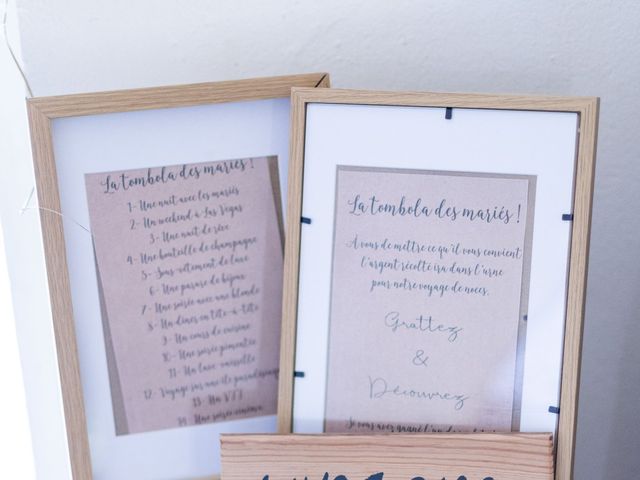 La tombola des mariés !
1- Une nuit avec les mariés
2- Un weekend à Las Vegas
3- Une nuit de rêve
4- Une bouteille de champagne
5- Sous-vêtement de luxe
6- Une parure de bijou
7- Une soirée avec une blonde
8- Un dîner en tête-à-tête
9- Un cours de cuisine
10- Une soirée pimentée
11- Un lave-vaisselle
12- Voyage sur une île paradisiaque
13- Un VTT
14- Une soirée cinéma
La tombola des mariés !
À vous de mettre ce qu'il vous convient
l'argent récolté ira dans l'urne
pour notre voyage de noces.
Grattez
&
Découvrez